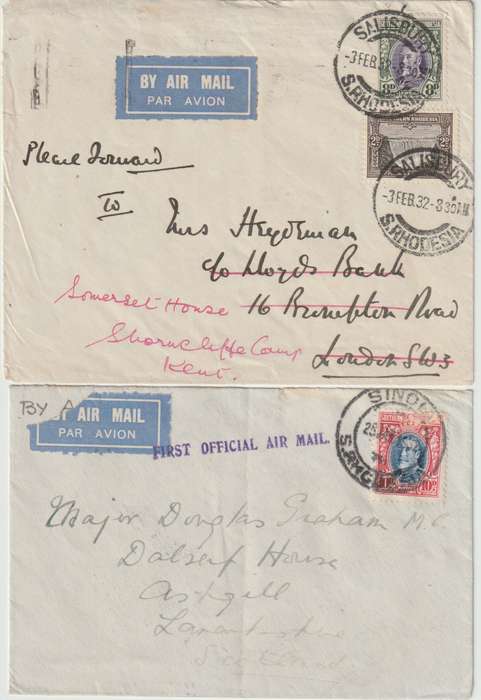 BY AIR MAIL
PAR AVION
SALISBURY
-3 FEB 32
S. RHODESIA
8D 8D
SOUTHERN RHODESIA
2D 2D
SALISBURY
-3 FEB. 32 - 8 30 AM
S. RHODESIA
Please forward
to
Mrs Heydeman
c/o Lloyds Bank
Somerset House 16 Brompton Road
Shorncliffe Camp London SW3
Kent.
BY A
Y AIR MAIL
PAR AVION
FIRST OFFICIAL AIR MAIL.
SINO
10D 10D
Major Douglas Graham M.C.
Dalserf House
Ashgill
Lanarkshire
Scotland